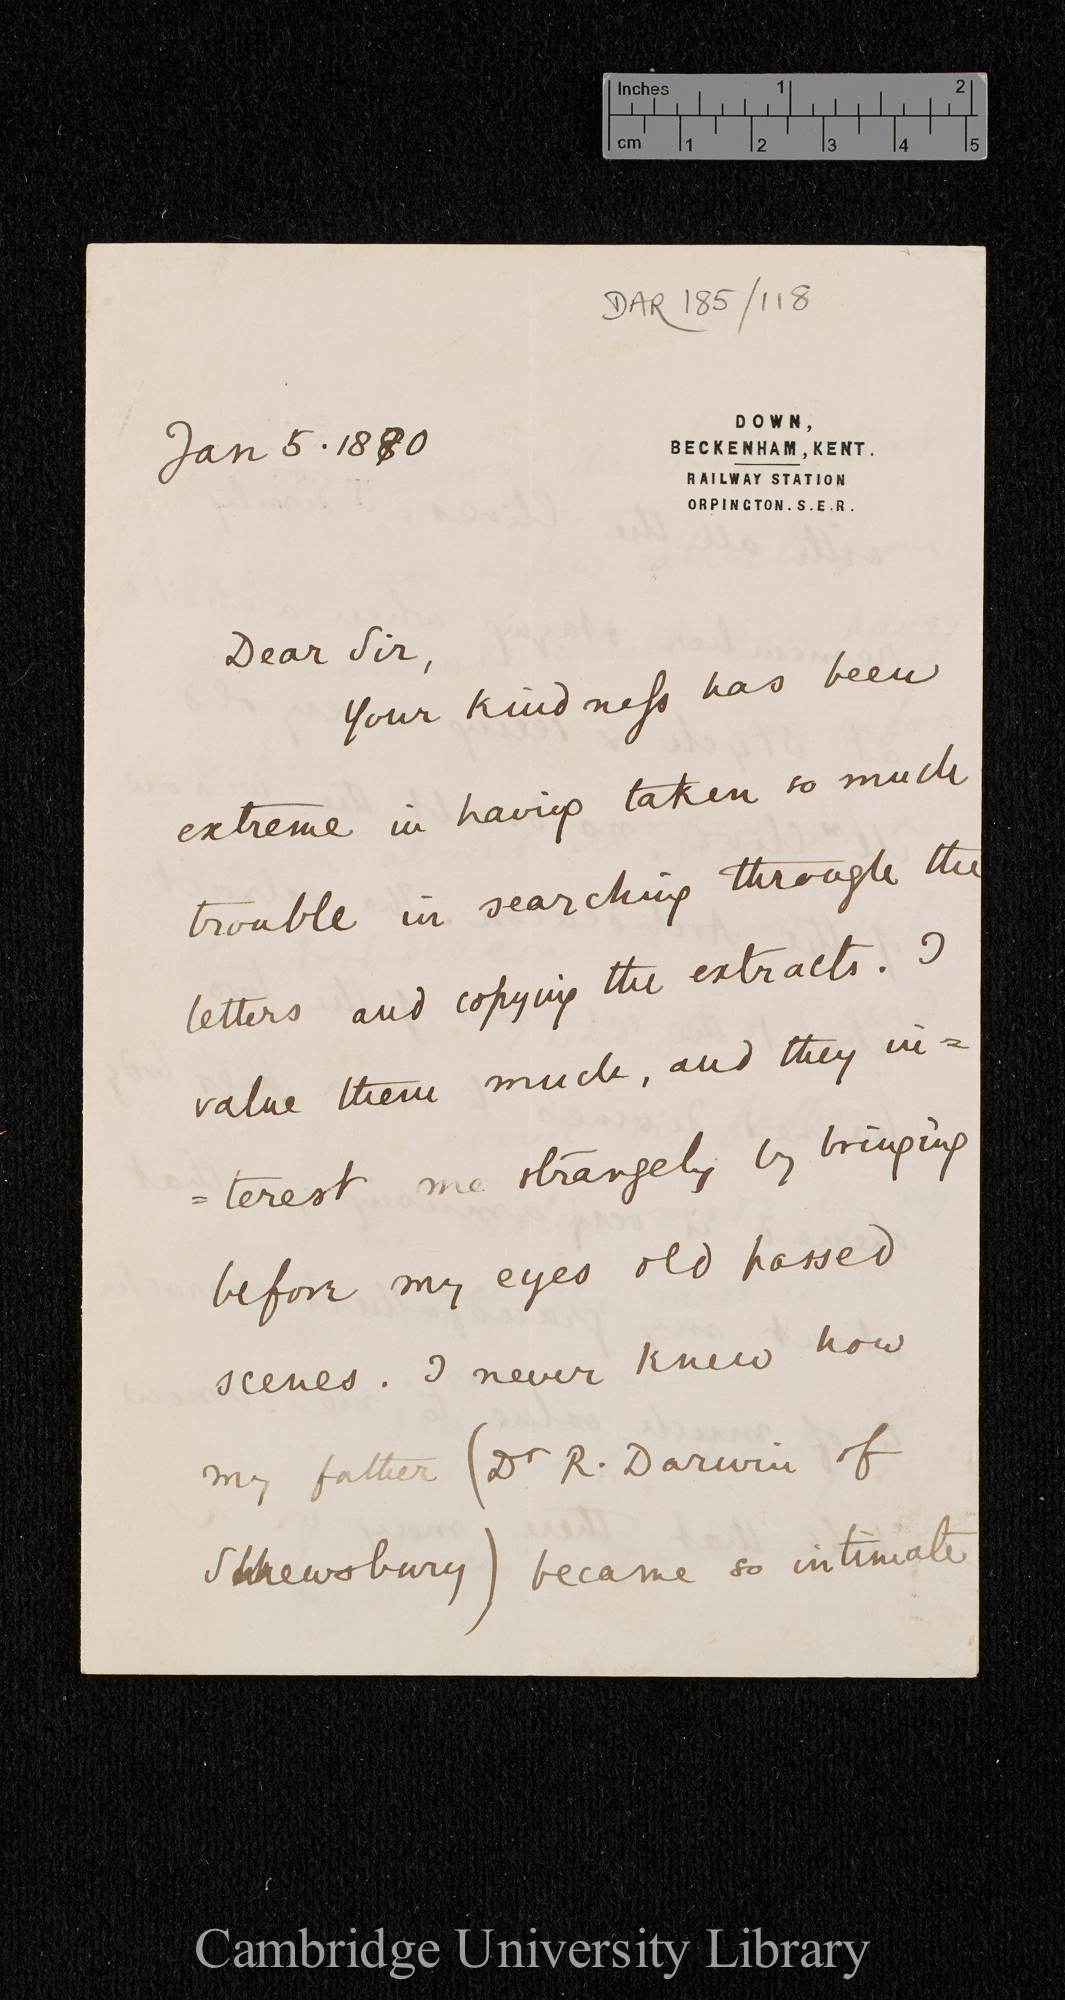 Inches 1 2
cm 1 2 3 4 5
DAR 185/118
Jan 5. 1880
DOWN,
BECKENHAM, KENT.
RAILWAY STATION
ORPINGTON. S.E.R.
Dear Sir,
Your kindness has been
extreme in having taken so much
trouble in searching through the
letters and copying the extracts. I
value them much, and they in=
=terest me strangely by bringing
before my eyes old passed
scenes. I never knew how
my father (Dr R. Darwin of
Shrewsbury) became so intimate
Cambridge University Library